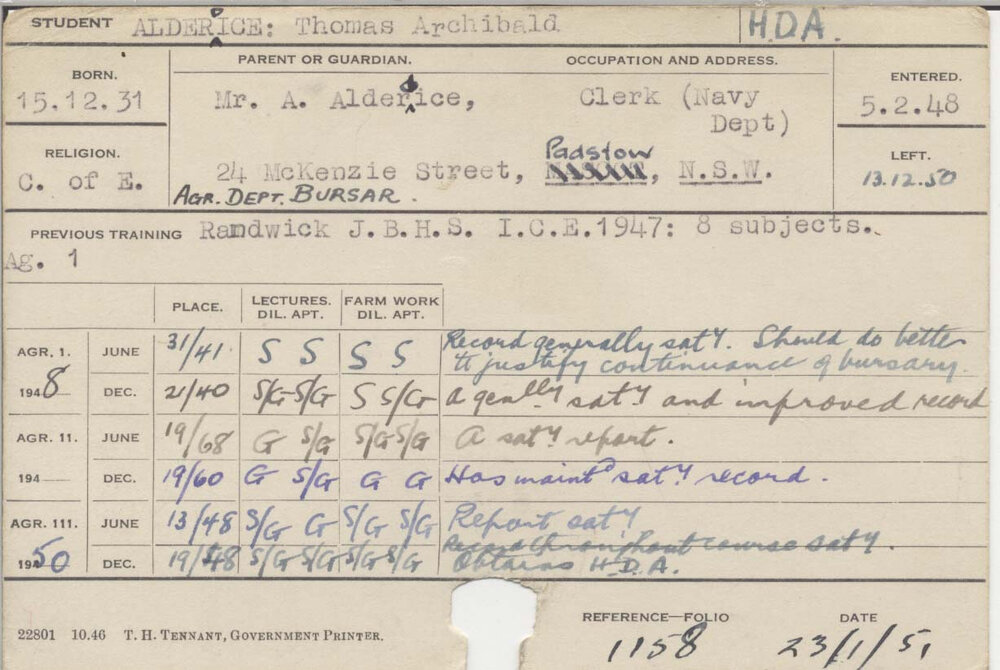 STUDENT ALDERICE: Thomas Archibald H.D.A.
BORN. PARENT OR GUARDIAN. OCCUPATION AND ADDRESS. ENTERED.
15.12.31 Mr. A. Alderice, Clerk (Navy 5.2.48
Dept)
RELIGION. Padstow LEFT.
C. of E. 24 McKenzie Street, , N.S.W. 13.12.50
AGR. DEPT. BURSAR.
PREVIOUS TRAINING Randwick J.B.H.S. I.C.E.1947: 8 subjects.
Ag. 1
PLACE. LECTURES. FARM WORK
DIL. APT. DIL. APT.
AGR. 1. JUNE 31/41 S S S S Record generally sat'y. Should do better
to justify continuance of bursary.
1948 DEC. 21/40 S/G S/G S S/G A gen'lly sat'y and improved record
AGR. 11. JUNE 19/68 G S/G S/G S/G A sat'y report.
194 DEC. 19/60 G S/G G G Has maint'd sat'y record.
AGR. 111. JUNE 13/48 S/G G S/G S/G Report sat'y
Record throughout course sat'y.
1950 DEC. 19/48 S/G S/G S/G S/G Obtains H.D.A.
REFERENCE—FOLIO DATE
22801 10.46 T. H. TENNANT, GOVERNMENT PRINTER. 1158 23/1/51